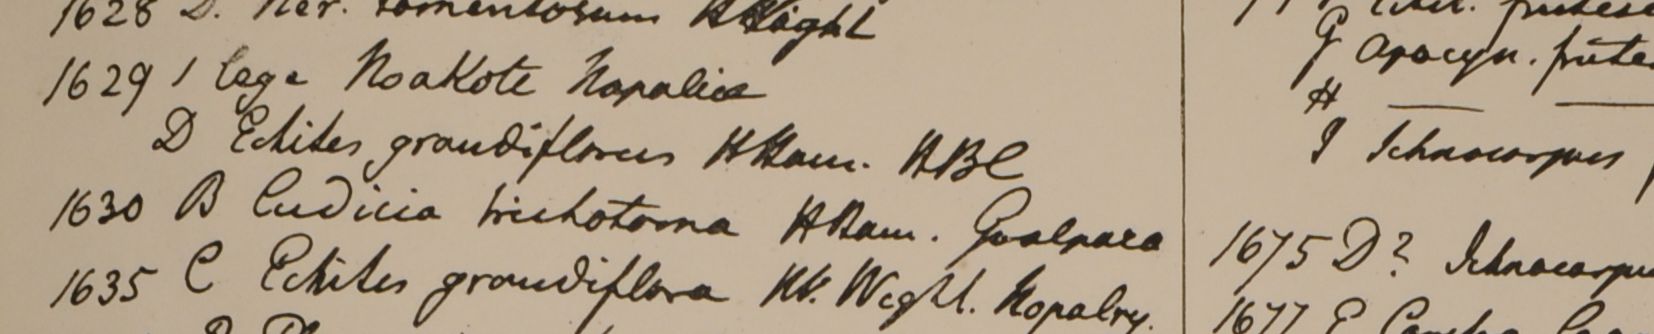 1628 D. Ner. tomentosum H Wight
1629 1 lege Noakote Napalia
D Echites grandiflorus H Ham. HBC
1630 B Cudicia trichotoma H Ham. Goalpara
1635 C Echites grandiflora Hb. Wight. Nopalry.
G Apocyn. frute
H
I Ichnocarpus
1675 D? Ichnocarpu
1677 E